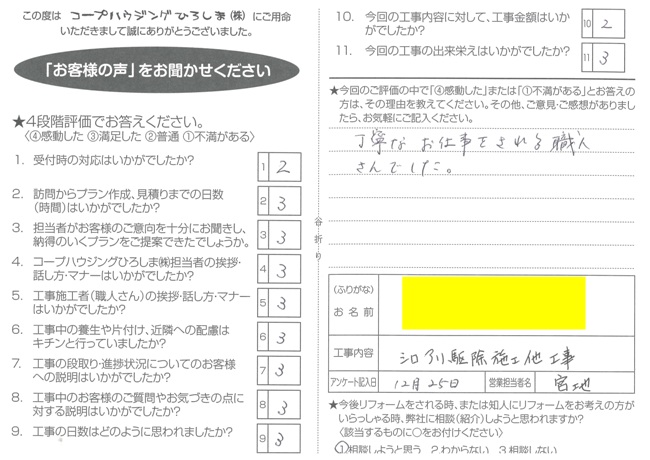 この度は コープハウジングひろしま(株) にご用命
いただきまして誠にありがとうございました。
「お客様の声」をお聞かせください
★4段階評価でお答えください。
〈④感動した ③満足した ②普通 ①不満がある〉
1. 受付時の対応はいかがでしたか?
1 2
2. 訪問からプラン作成、見積りまでの日数
(時間)はいかがでしたか?
2 3
3. 担当者がお客様のご意向を十分にお聞きし、
納得のいくプランをご提案できたでしょうか。
3 3
4. コープハウジングひろしま㈱担当者の挨拶・
話し方・マナーはいかがでしたか?
4 3
5. 工事施工者(職人さん)の挨拶・話し方・マナー
はいかがでしたか?
5 3
6. 工事中の養生や片付け、近隣への配慮は
キチンと行っていましたか?
6 3
7. 工事の段取り・進捗状況についてのお客様
への説明はいかがでしたか?
7 3
8. 工事中のお客様のご質問やお気づきの点に
対する説明はいかがでしたか?
8 3
9. 工事の日数はどのように思われましたか?
9 3
谷折り
10. 今回の工事内容に対して、工事金額はいか
がでしたか?
10 2
11. 今回の工事の出来栄えはいかがでしたか?
11 3
★今回のご評価の中で「④感動した」または「①不満がある」とお答えの
方は、その理由を教えてください。その他、ご意見・ご感想がありまし
たら、お気軽にご記入ください。
丁寧な お仕事をされる職人
さんでした。
(ふりがな)
お名前
工事内容
シロアリ駆除施工他工事
アンケート記入日
12月25日
営業担当者名
宮地
★今後リフォームをされる時、または知人にリフォームをお考えの方が
いらっしゃる時、弊社に相談(紹介)しようと思われますか?
〈該当するものに○をお付けください〉
1 相談しようと思う 2.わからない 3.相談しない